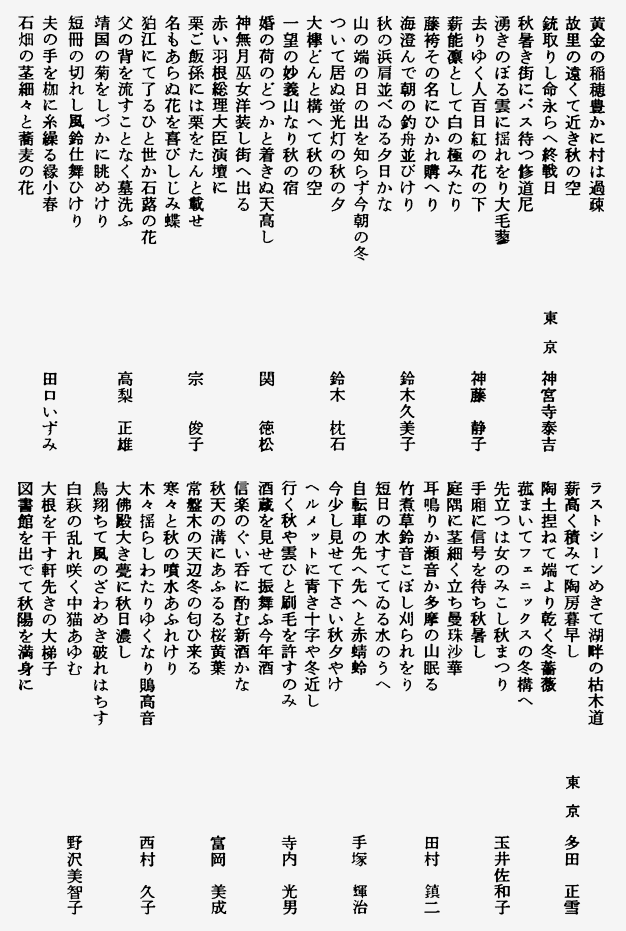 黄金の稲穂豊かに村は過疎
故里の遠くて近き秋の空
銃取りし命永らへ終戦日
東京 神宮寺泰吉
秋暑き街にバス待つ修道尼
湧きのぼる雲に揺れをり大毛蓼
去りゆく人百日紅の花の下
神藤 静子
薪能凛として白の極みたり
藤袴その名にひかれ購へり
海澄んで朝の釣舟並びけり
鈴木久美子
秋の浜肩並べゐる夕日かな
山の端の日の出を知らず今朝の冬
ついて居ぬ蛍光灯の秋の夕
鈴木 枕石
大欅どんと構へて秋の空
一望の妙義山なり秋の宿
婚の荷のどつかと着きぬ天高し
関 徳松
神無月巫女洋装し街へ出る
赤い羽根総理大臣演壇に
栗ご飯孫には栗をたんと載せ
宗 俊子
名もあらぬ花を喜びしじみ蝶
狛江にて了るひと世か石蕗の花
父の背を流すことなく墓洗ふ
高梨 正雄
靖国の菊をしづかに眺めけり
短冊の切れし風鈴仕舞ひけり
夫の手を枷に糸繰る縁小春
田口いずみ
石畑の茎細々と蕎麦の花
ラストシーンめきて湖畔の枯木道
薪高く積みて陶房暮早し
東京 多田 正雪
陶土捏ねて端より乾く冬薔薇
菰まいてフェニックスの冬構へ
先立つは女のみこし秋まつり
玉井佐和子
手廂に信号を待ち秋暑し
庭隅に茎細く立ち曼珠沙華
耳鳴りか瀬音か多摩の山眠る
田村 鎮二
竹煮草鈴音こぼし刈られをり
短日の水すててゐる水のうへ
自転車の先へ先へと赤蜻蛉
手塚 輝治
今少し見せて下さい秋夕やけ
ヘルメットに青き十字や冬近し
行く秋や雲ひと刷毛を許すのみ
寺内 光男
酒蔵を見せて振舞ふ今年酒
信楽のぐい呑に酌む新酒かな
秋天の溝にあふるる桜黄葉
富岡 美成
常盤木の天辺冬の匂ひ来る
寒々と秋の噴水あふれけり
木々揺らしわたりゆくなり鵙高音
西村 久子
大佛殿大き甍に秋日濃し
鳥翔ちて風のざわめき破れはちす
白萩の乱れ咲く中猫あゆむ
野沢美智子
大根を干す軒先きの大梯子
図書館を出でて秋陽を満身に